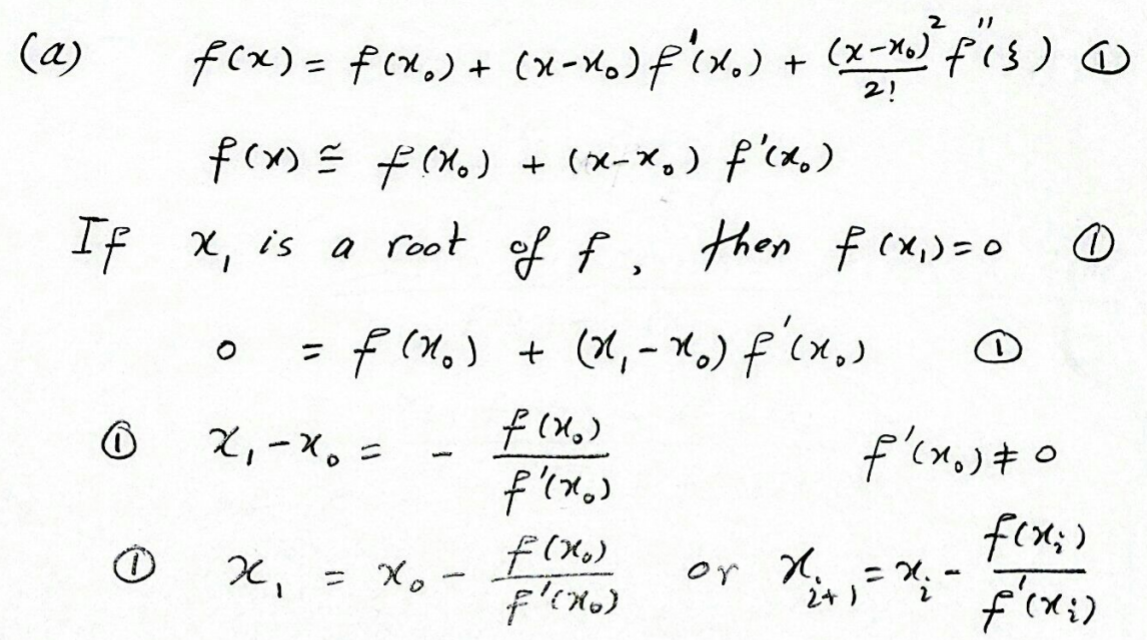 (a) f(x) = f(x₀) + (x-x₀) f'(x₀) + (x-x₀)²/2! f''(ξ) ①
f(x) ≅ f(x₀) + (x-x₀) f'(x₀)
If x₁ is a root of f, then f(x₁)=0 ①
0 = f(x₀) + (x₁-x₀) f'(x₀) ①
① x₁-x₀ = - f(x₀)/f'(x₀) f'(x₀) ≠ 0
① x₁ = x₀ - f(x₀)/f'(x₀) or xᵢ₊₁ = xᵢ - f(xᵢ)/f'(xᵢ)